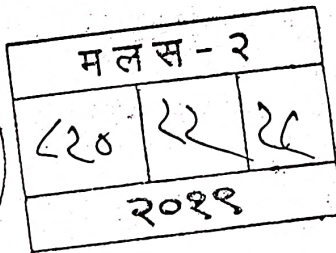 म ल स - २
८२० २२ २८
२०१९